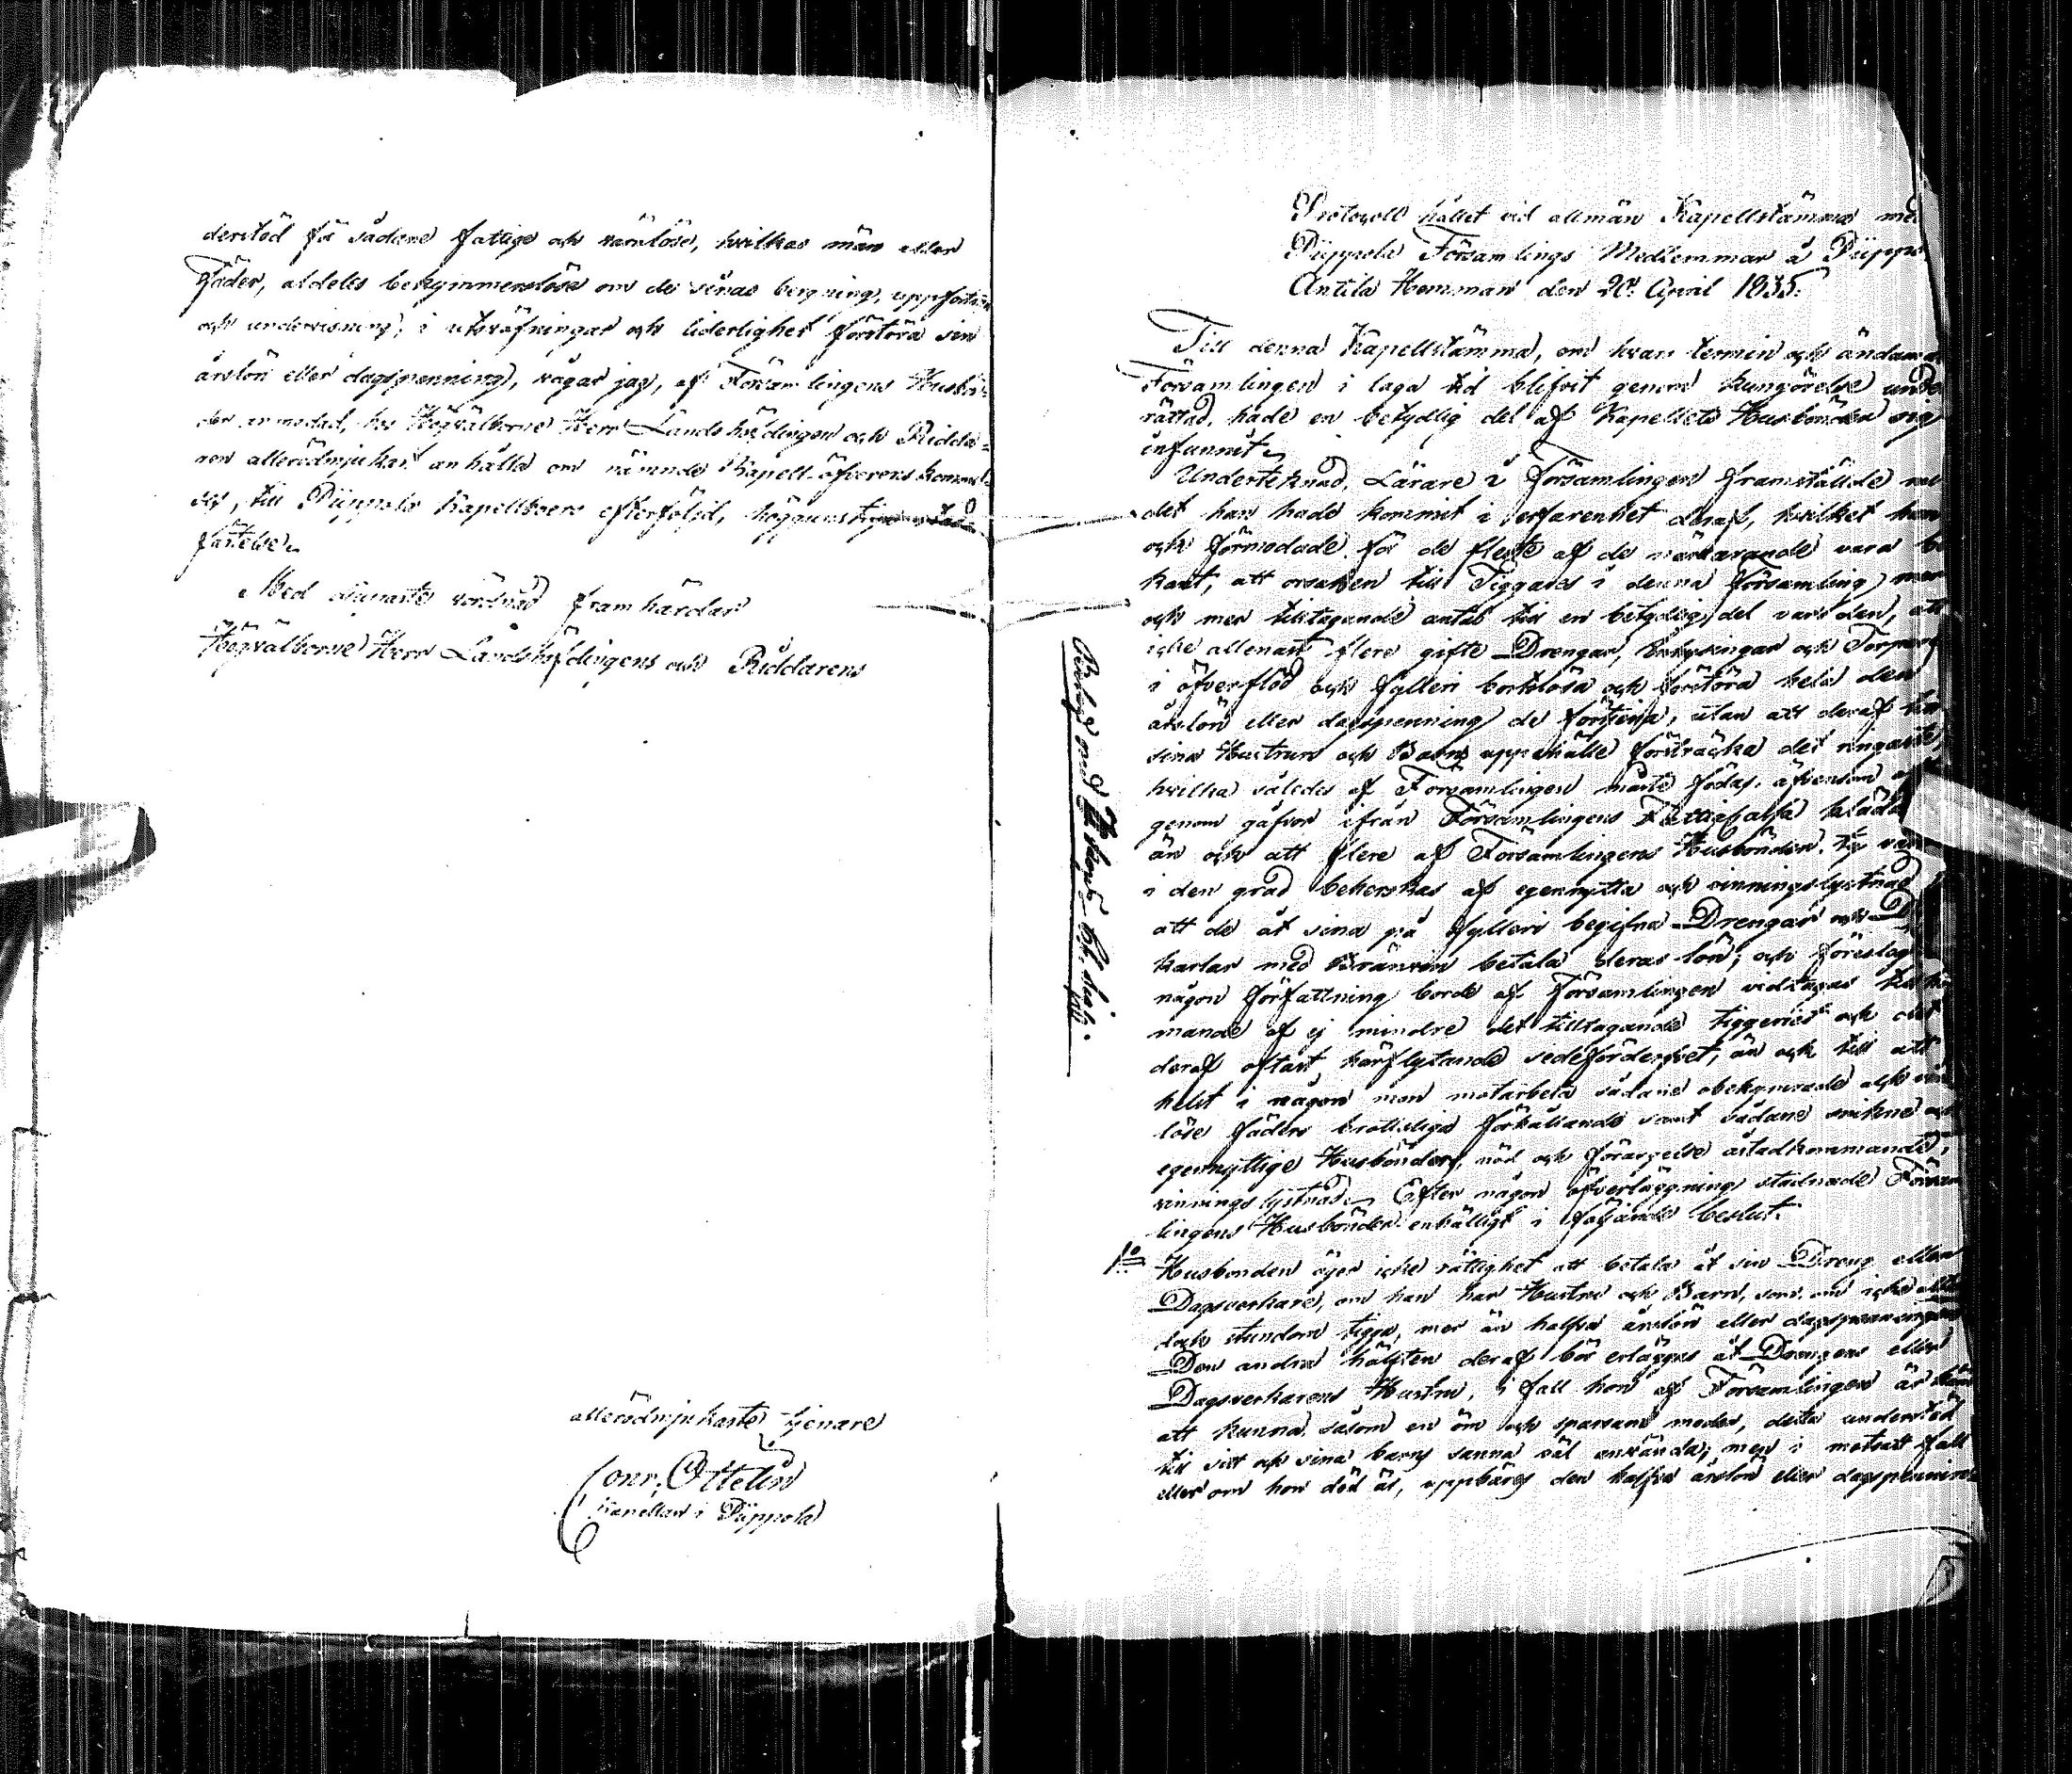 derstöd för sådane fattige och värnlöse, hvilkas män eller
Fäder, aldeles bekymmerslöse om de sinas bergning, uppfostran
och undervisning, i utsväfningar och liderlighet förstöra sin
årslön eller dagspenning, vågar jag, af Församlingens Husbön-
der anmodad, hos Högvälborne Herr Landshöfdingen och Ridda-
ren allerödmjukast anhålla om nämnde Kapell-öfverenskommel-
ses, till Piippola Kapellboers efterföljd, höggunstiga stad-
fästelse.
Med djupaste vördnad framhärdar
Högvälborne Herr Landshöfdingens och Riddarens
allerödmjukaste tjenare
Conr. Ottelin
Kapellan i Piippola
Protocoll hållet vid allmän Kapellstämma med
Piippola Församlings Medlemmar å Piippola
Antila Hemman den 20 April 1835.
Till denna Kapellstämma, om hvars termin och ändamål
Församlingen i laga tid blifvit genom kungörelse under-
rättad, hade en betydlig del af Kapellets Husbönder sig
infunnit.
Undertecknad, Lärare i Församlingen framställde
det han hade kommit i erfarenhet deraf, hvilket han
och förmodade för de fleste af de närvarande vara be-
kant, att orsaken till Tiggares i denna Församling mer
och mer tilltagande antal till en betydlig del vore den, att
icke allenast flere gifte Drengar, Inhysingar och Torpare
i öfverflöd och fylleri bortslösa och förstöra hela den
årslön eller dagspenning de förtjena, utan att deraf till
sina Hustrurs och Barns uppehälle försträcka det ringaste,
hvilka således af Församlingen måste födas, äfvensom
genom gåfvor ifrån Församlingens Fattigkassa kläda
än och att flere af Församlingens Husbönder
i den grad beherskas af egennytta och vinningslystnad
att de åt sina på fylleri begifna Drengar och
karlar med Bränvin betala deras lön; och föreslog
någon författning borde af Församlingen vidtagas till
mande af ej mindre det tilltagande tiggeriet och det
deraf oftast härflytande sedeförderfvet, än och till att
helst i någon mon motarbeta sådane obekymrade och
löse fäders brottsliga förhållande samt sådane
egennyttige Husbönders, nöd och förargelse åstadkommande,
vinningslystnad. Efter någon öfverläggning stadnade Försam-
lingens Husbönder enhälligt i följande beslut.
1:o
Husbonden äger icke rättighet att betala åt sin Dreng eller
Dagsverkare, om han har Hustru och Barn, som, om icke
dock stundom tigga, mer än halfva årslön eller dagspenningen
Den andra hälften deraf bör erläggas åt Drengens eller
Dagsverkarens Hustru, i fall hon af Församlingen är känd
att kunna, såsom en öm och sparsam moder, detta understöd
till sitt och sina barns sanna väl använda; men i motsatt fall
eller om hon död är, uppbäres den halfva årslön eller dagspenning